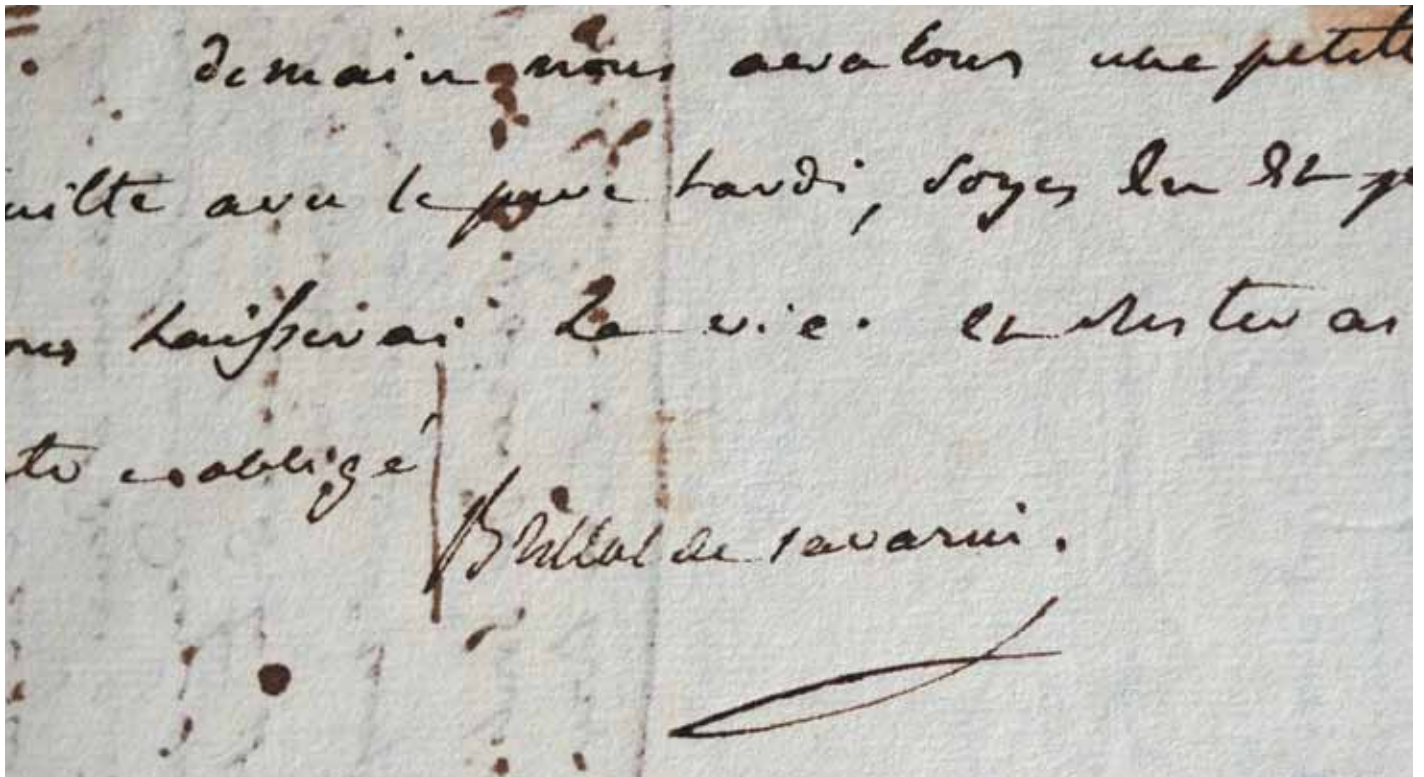 demain nous avalons une petite
uitte avec le pere tardi, soyes en et je
ous laisserai la vie. et resteras
te et obligé
Brillat de savarin.